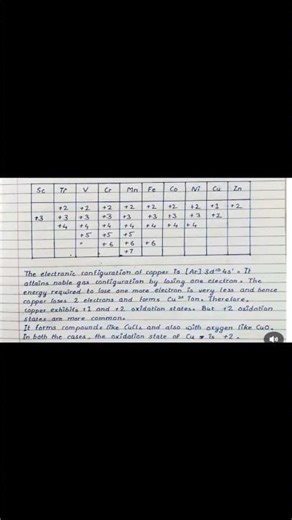 Sc Ti V Cr Mn Fe Co Ni Cu Zn
+2 +2 +2 +2 +2 +2 +2 +1 +2
+3 +3 +3 +3 +3 +3 +3 +3 +2
+4 +4 +4 +4 +4 +4 +4
+5 +5 +5
+6 +6 +6
+7
The electronic configuration of copper is [Ar] 3d¹⁰ 4s¹. It
attains noble gas configuration by losing one electron. The
energy required to lose one more electron is very less and hence
copper loses 2 electrons and forms Cu²⁺ ion. Therefore,
copper exhibits +1 and +2 oxidation states. But +2 oxidation
states are more common.
It forms compounds like CuCl₂ and also with oxygen like CuO.
In both the cases, the oxidation state of Cu is +2.